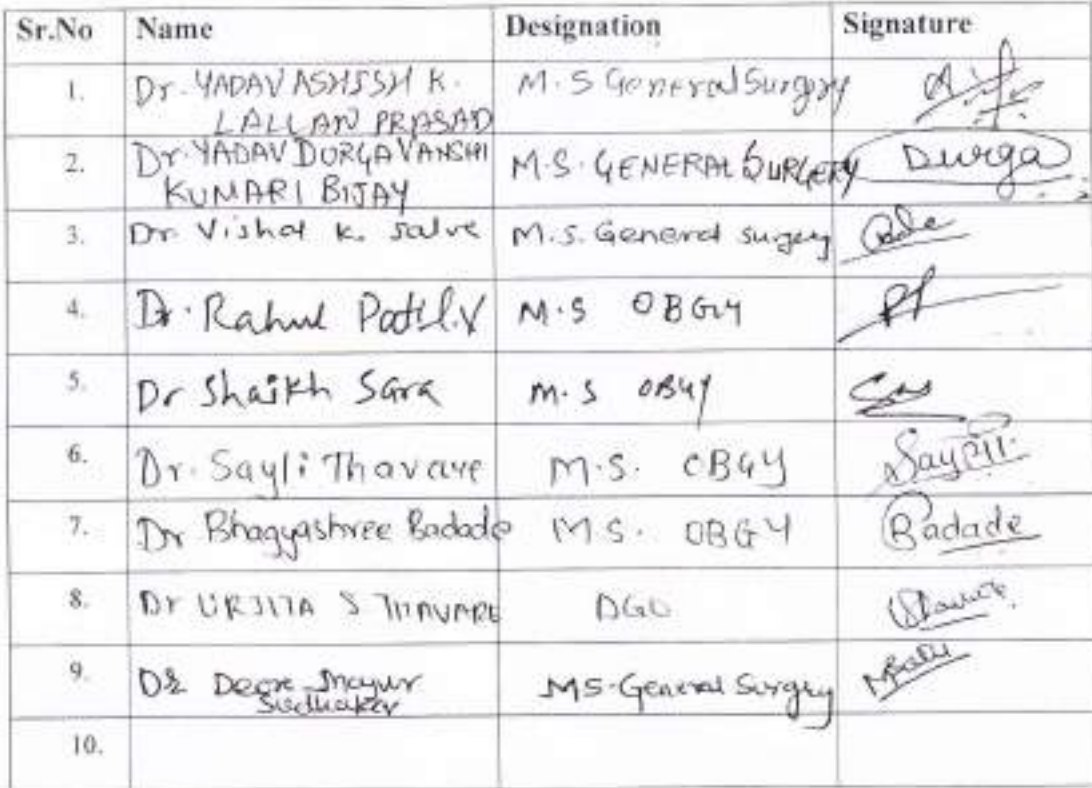 Sr.No Name Designation Signature
1. Dr. YADAV ASHISH K. M.S General Surgery
LALLAN PRASAD
2. Dr. YADAV DURGAVANSHI M.S. GENERAL SURGERY Durga
KUMARI BIJAY
3. Dr. Vishal K. Salve M.S. General surgery
4. Dr. Rahul Patil.V M.S OBGY
5. Dr Shaikh Sara M.S OBGY
6. Dr. Sayli Thavare M.S. OBGY Sayali
7. Dr Bhagyashree Badade M.S. OBGY Badade
8. Dr URJITA S THAVARE DGO
9. Dr Deore Mayur MS-General Surgery
Sudhakar
10.